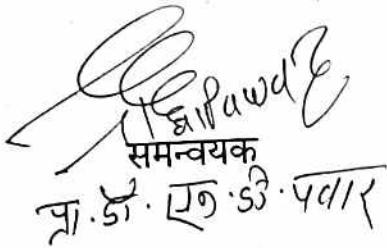 समन्वयक
प्रा.डॉ. एन.डी. पवार